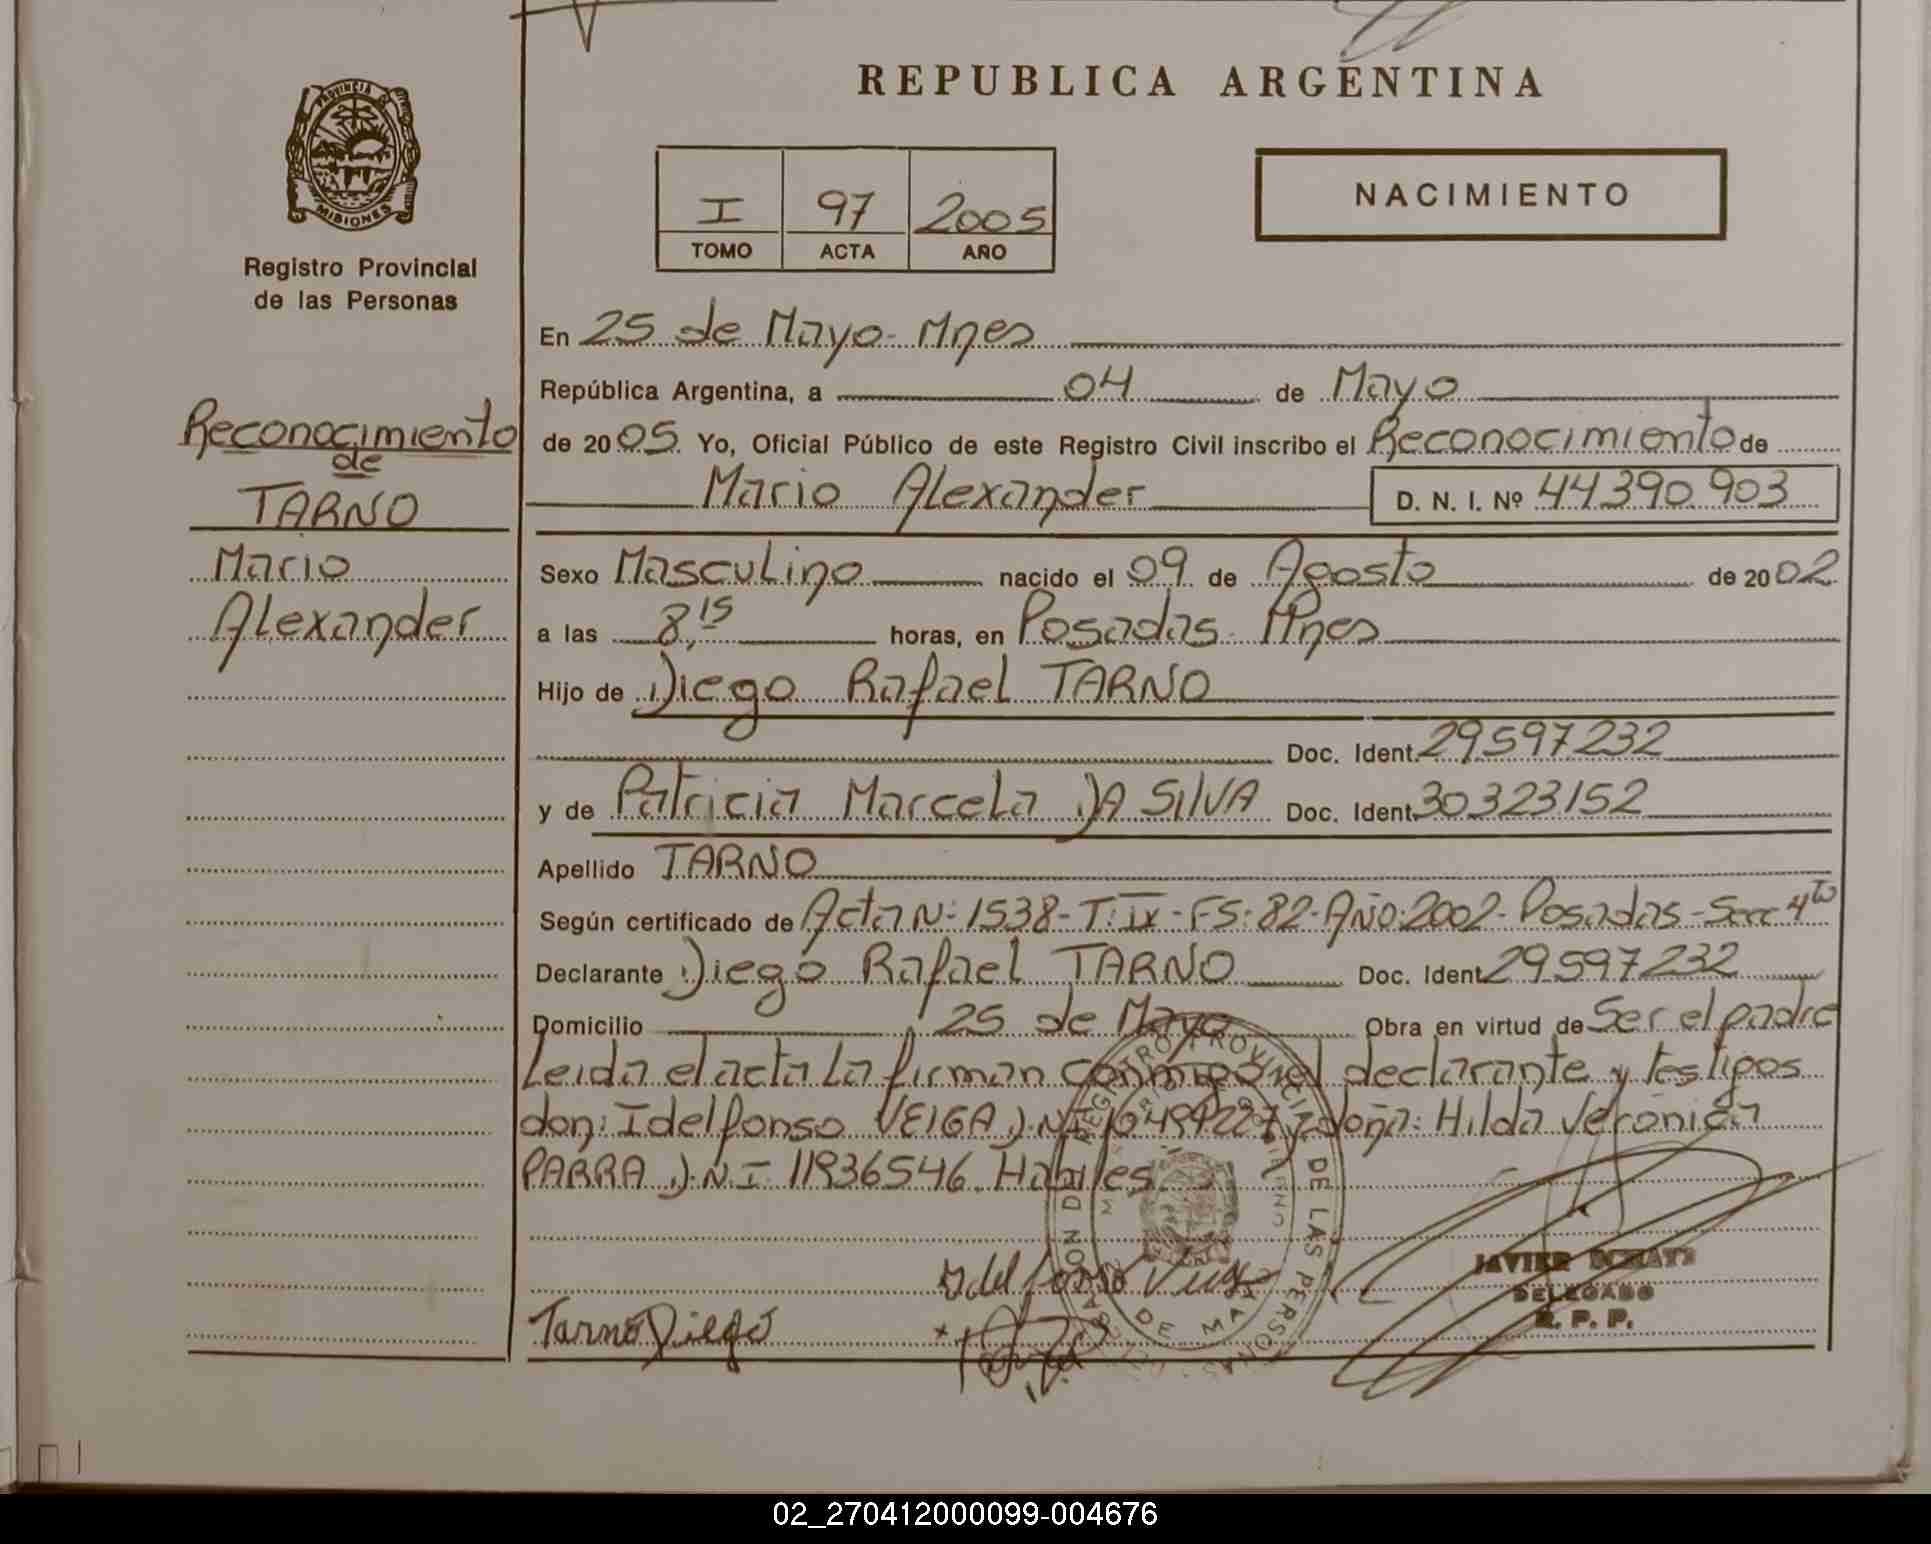 REPUBLICA ARGENTINA
PROVINCIA DE
MISIONES
Registro Provincial
de las Personas
I 97 2005
TOMO ACTA AÑO
NACIMIENTO
Reconocimiento
de
TARNO
Mario
Alexander
En 25 de Mayo - Mnes
República Argentina, a 04 de Mayo
de 2005. Yo, Oficial Público de este Registro Civil inscribo el Reconocimiento de
Mario Alexander D. N. I. Nº 44.390.903
Sexo Masculino nacido el 09 de Agosto de 2002
a las 8,15 horas, en Posadas - Mnes
Hijo de Diego Rafael TARNO
Doc. Ident. 29597232
y de Patricia Marcela DA SILVA Doc. Ident. 30323152
Apellido TARNO
Según certificado de Acta N: 1538 - T: IX - FS: 82 - Año: 2002 - Posadas - Secc 4to
Declarante Diego Rafael TARNO Doc. Ident 29597232
Domicilio 25 de Mayo Obra en virtud de Ser el padre
Leida el acta la firman conmigo el declarante y testigos
don: Idelfonso VEIGA D.N.I 10494227 y doña: Hilda Verónica
PARRA D.N.I. 11936546. Habiles
REGISTRO PROVINCIAL DE LAS PERSONAS
DE MAYO
Tarno Diego
JAVIER
DELEGADO
R. P. P.
02_270412000099-004676